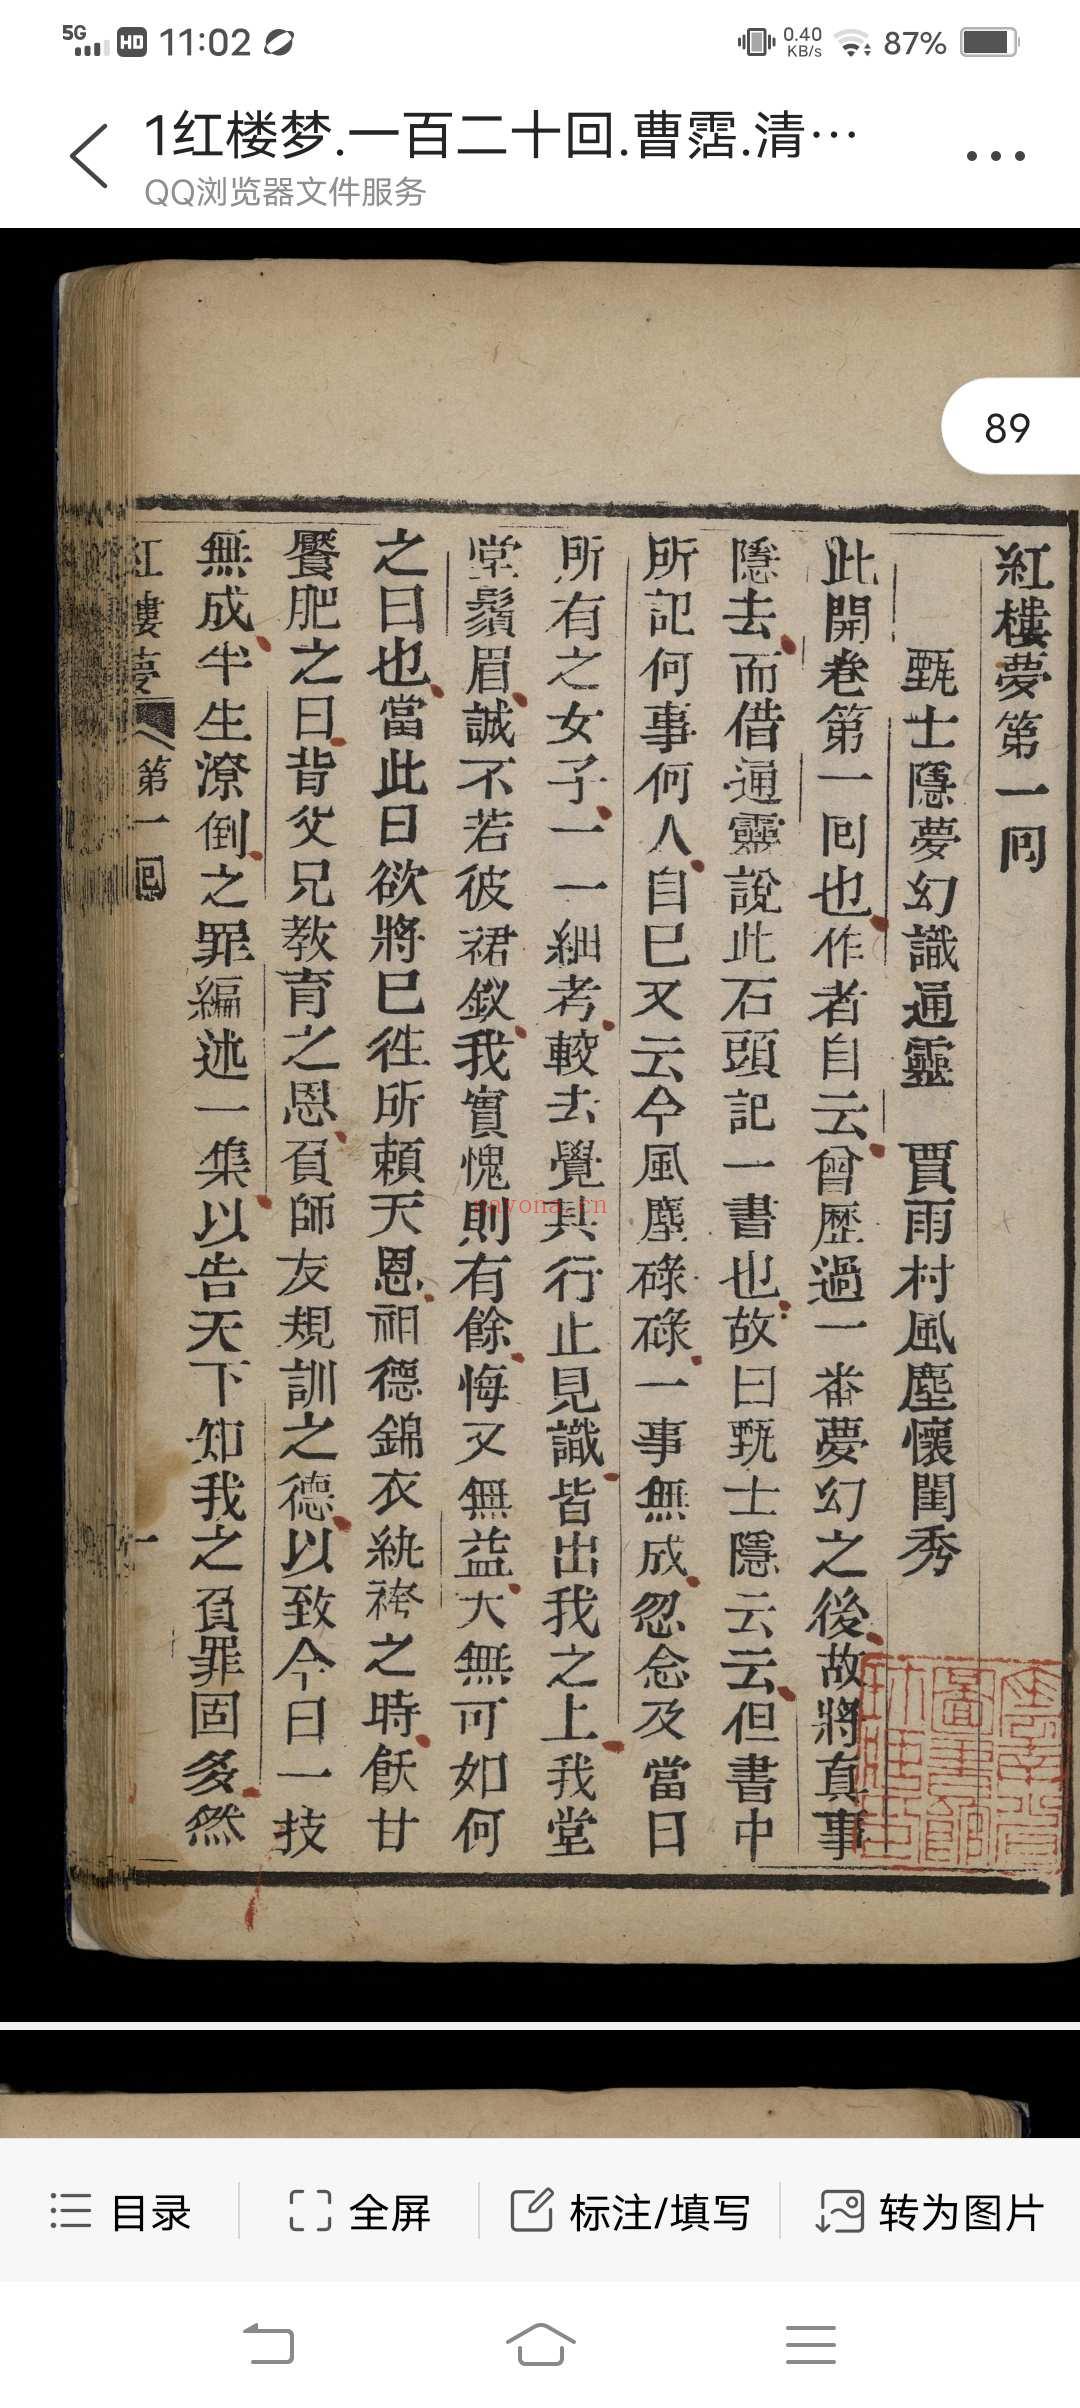 5G HD 11:02 0.40 KB/s 87%
1红楼梦.一百二十回.曹霑.清…
QQ浏览器文件服务
89
紅樓夢第一囘
甄士隱夢幻識通靈 賈雨村風塵懷閨秀
此開卷第一囘也作者自云曾歷過一番夢幻之後故將真事
隱去而借通靈說此石頭記一書也故曰甄士隱云云但書中
所記何事何人自己又云今風塵碌碌一事無成忽念及當日
所有之女子一一細考較去覺其行止見識皆出我之上我堂
堂鬚眉誠不若彼裙釵我實愧則有餘悔又無益大無可如何
之日也當此日欲將已徃所賴天恩祖德錦衣紈袴之時飫甘
饜肥之日背父兄教育之恩負師友規訓之德以致今日一技
無成半生潦倒之罪編述一集以告天下知我之負罪固多然
紅樓夢 第一回 一
nayona.cn
目录 全屏 标注/填写 转为图片